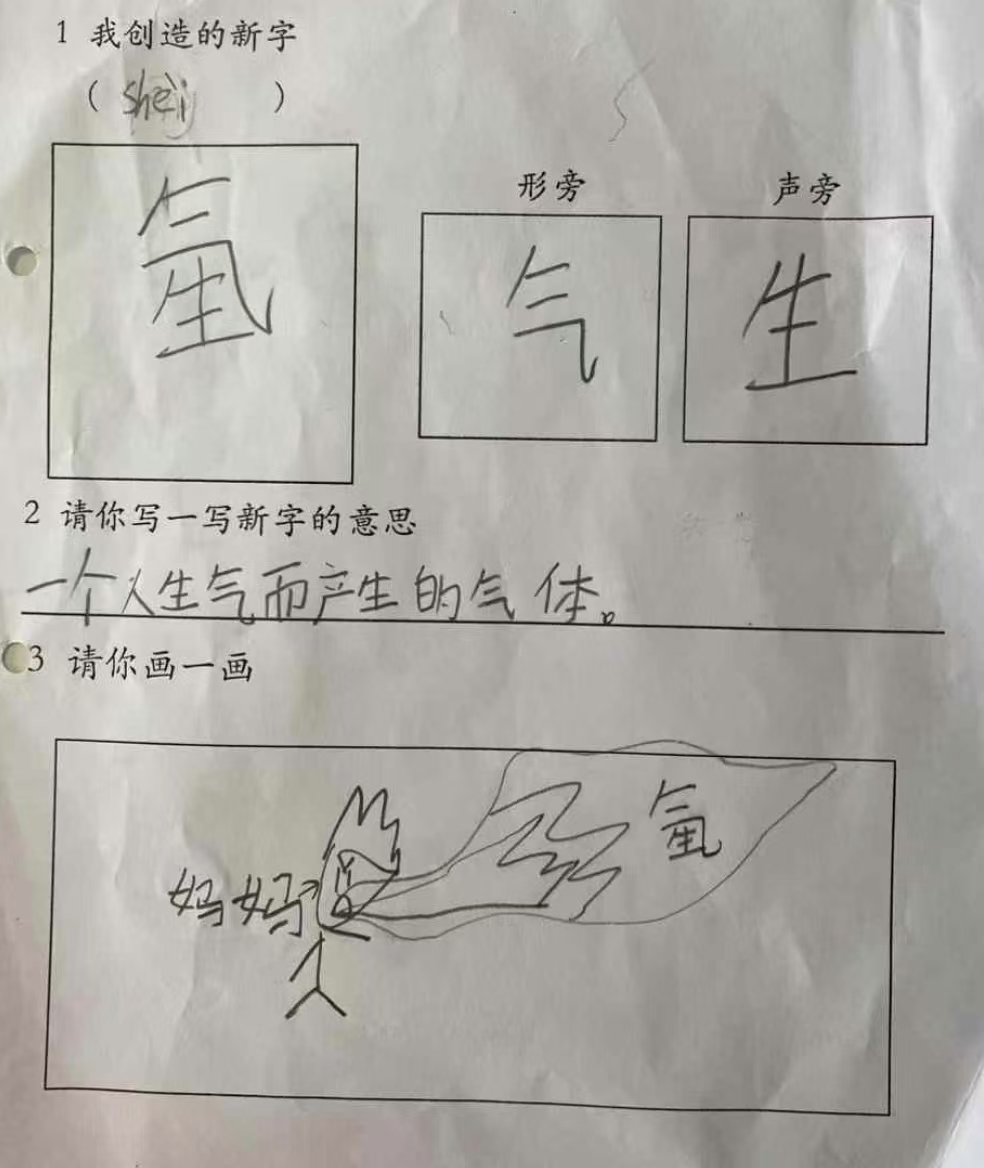 1 我创造的新字
（ shēnɡ ）
形旁 声旁
氠 气 生
2 请你写一写新字的意思
一个人生气而产生的气体。
3 请你画一画
妈妈